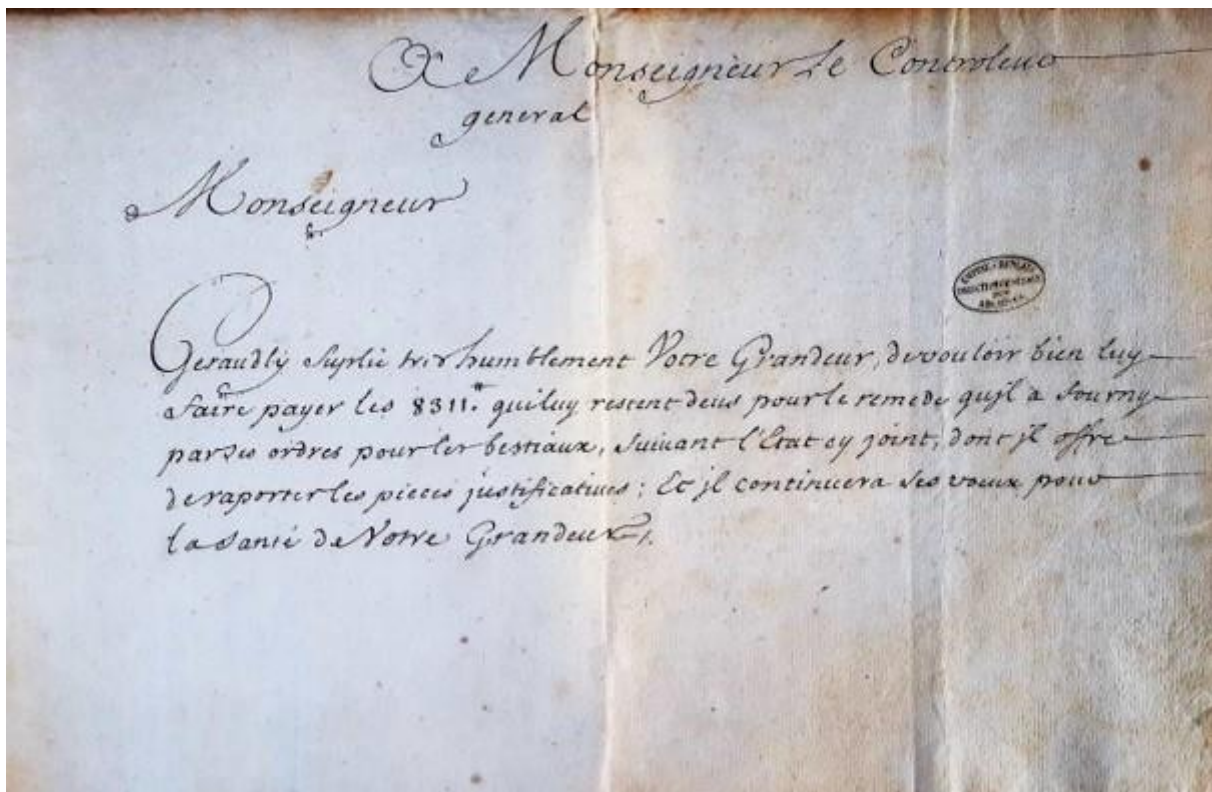 A Monseigneur Le Controleur
general
Monseigneur
EMPIRE FRANÇAIS
DIRECTION GÉNÉRALE
DES
ARCHIVES
Geraudly Suplie tres humblement Votre Grandeur, de vouloir bien luy
faire payer les 8311.# qui luy restent deus pour le remede qu'jl a fourny
par ses ordres pour les bestiaux, suivant l'Etat cy joint, dont jl offre
de raporter les pieces justificatives; Et jl continuera ses vœux pour
la santé de Votre Grandeur.